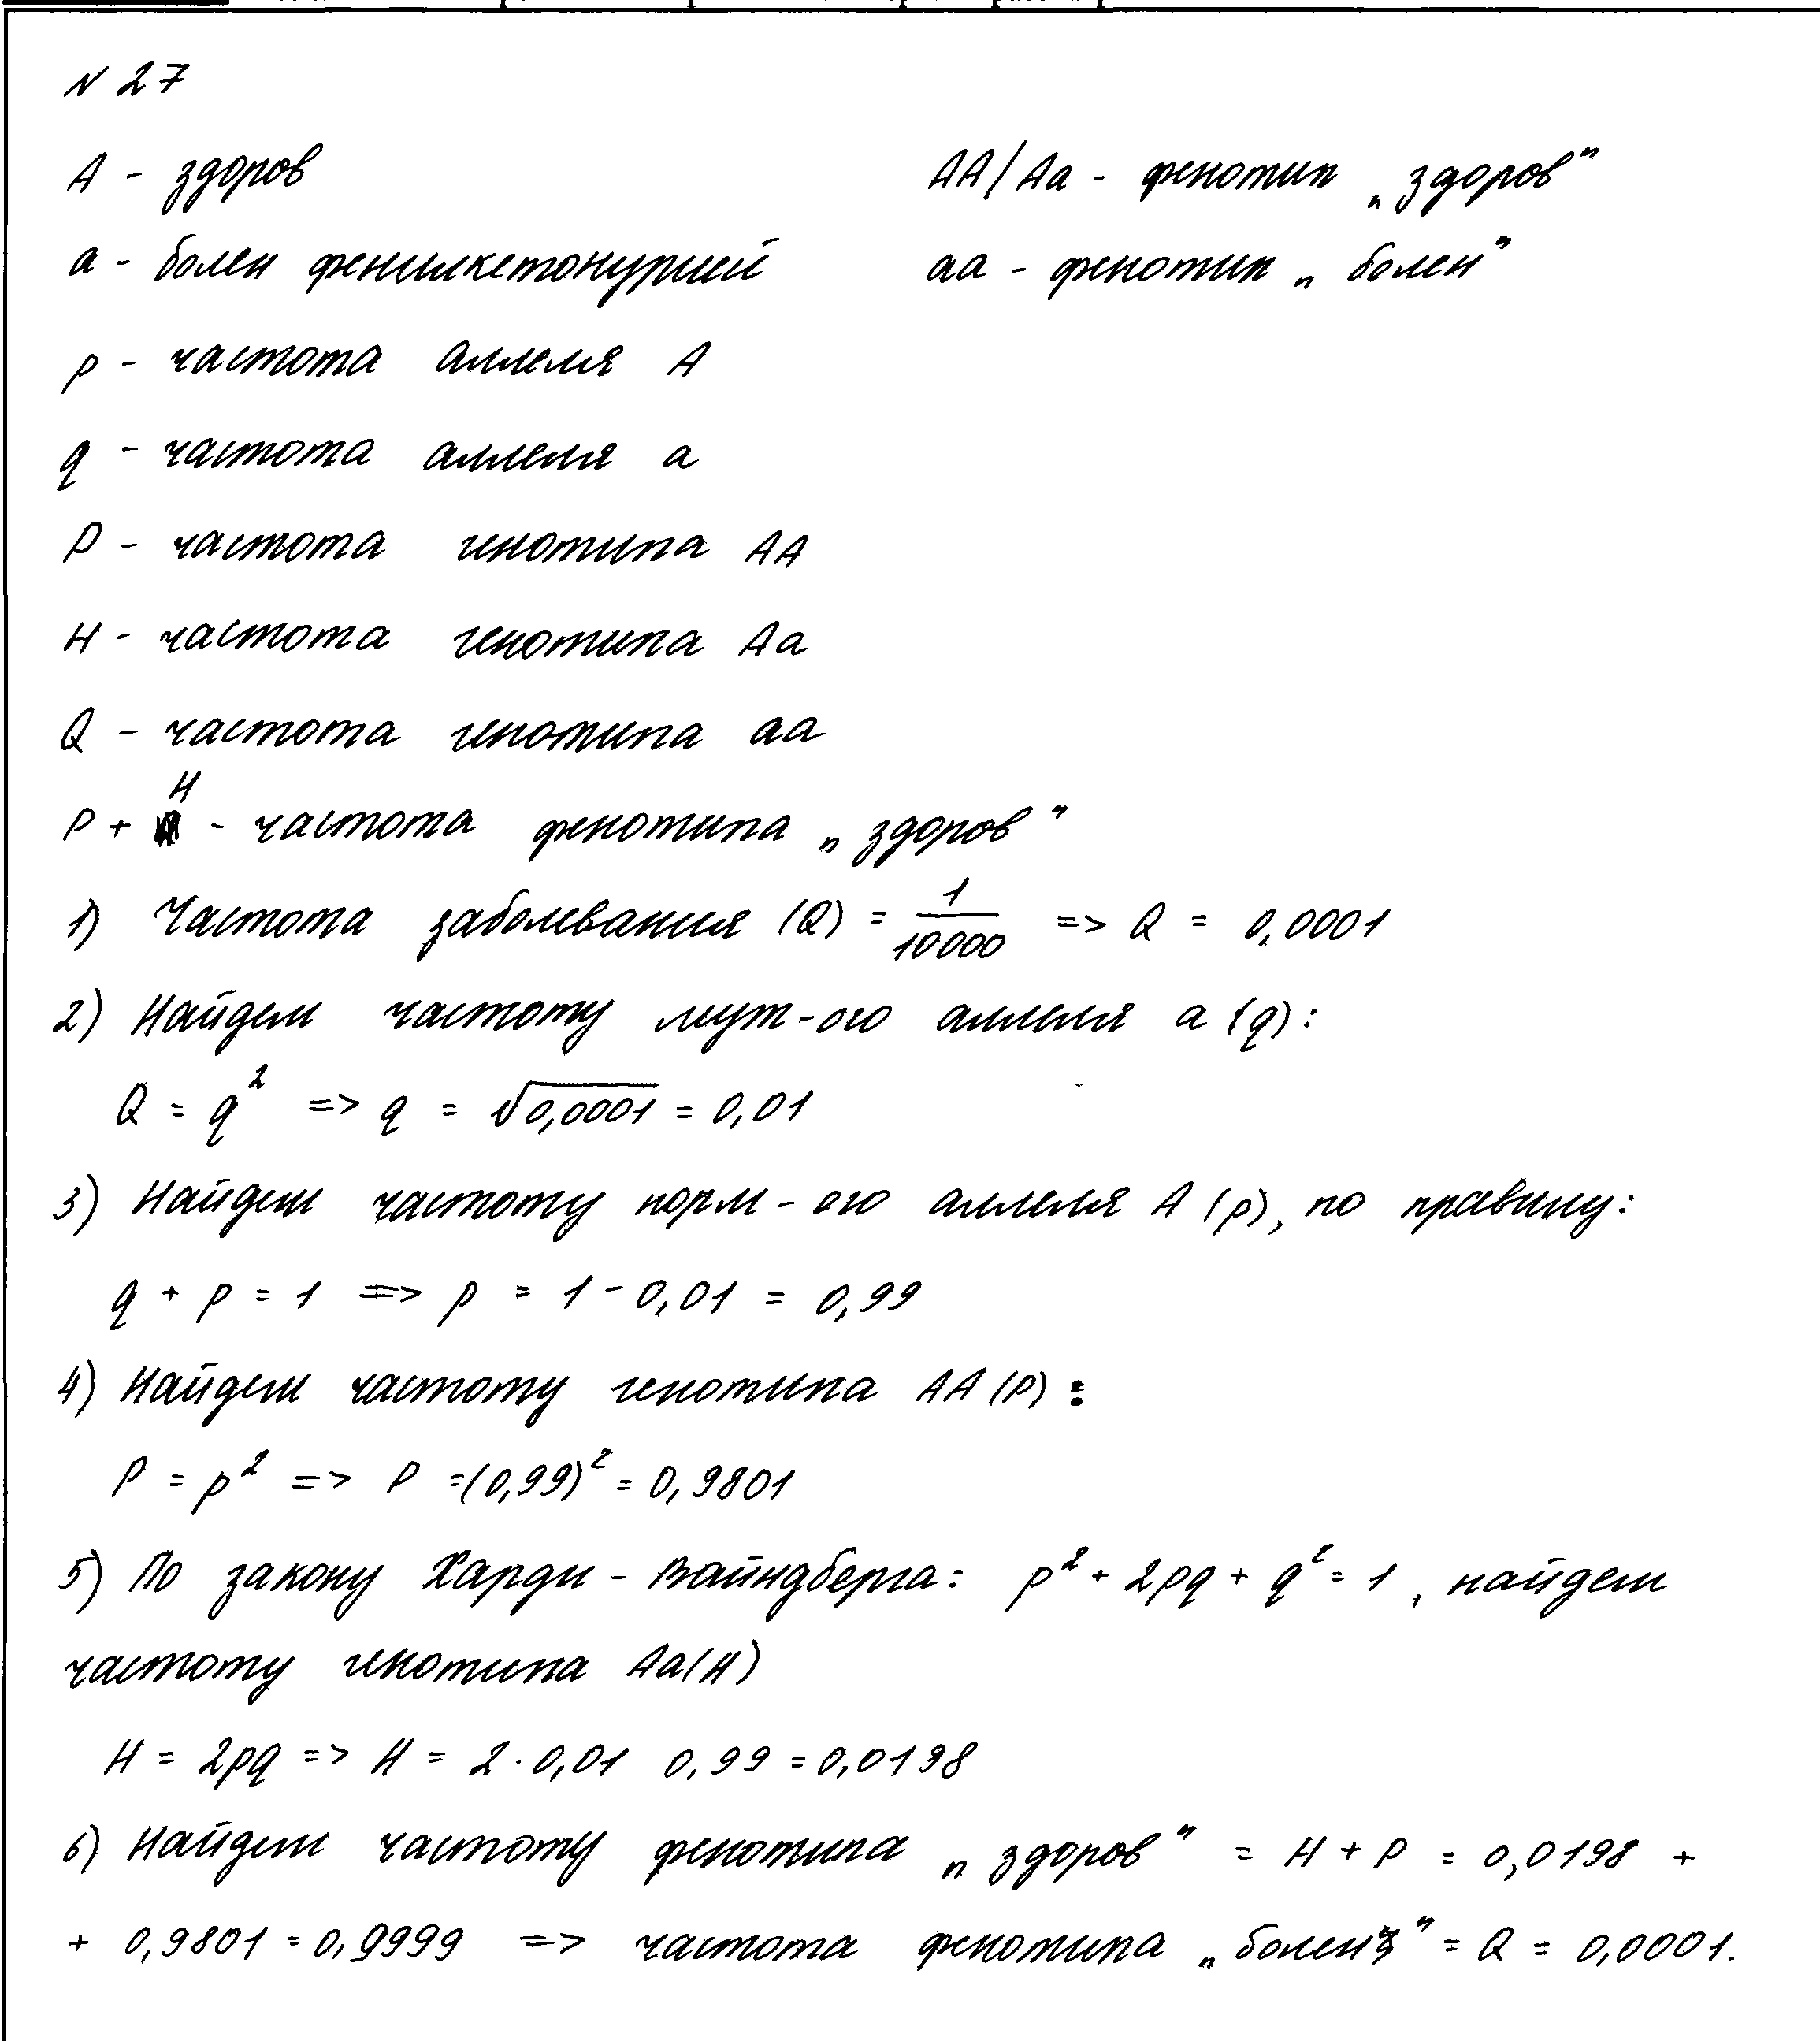 N 27
A - здоров AA/Aa - фенотип „здоров"
a - болен фенилкетонурией aa - фенотип „болен"
p - частота аллеля A
q - частота аллеля a
P - частота генотипа AA
H - частота генотипа Aa
Q - частота генотипа aa
P + H - частота фенотипа „здоров"
1) Частота заболевания (Q) = 1/10000 => Q = 0,0001
2) Найдем частоту мут-ого аллеля a (q):
Q = q² => q = √0,0001 = 0,01
3) Найдем частоту норм-ого аллеля A (p), по правилу:
q + p = 1 => p = 1 - 0,01 = 0,99
4) Найдем частоту генотипа AA (P):
P = p² => P =(0,99)² = 0,9801
5) По закону Харди - Вайндберга: p² + 2pq + q² = 1, найдем
частоту генотипа Aa(H)
H = 2pq => H = 2·0,01 0,99 = 0,0198
6) Найдем частоту фенотипа „здоров" = H + P = 0,0198 +
+ 0,9801 = 0,9999 => частота фенотипа „болен" = Q = 0,0001.